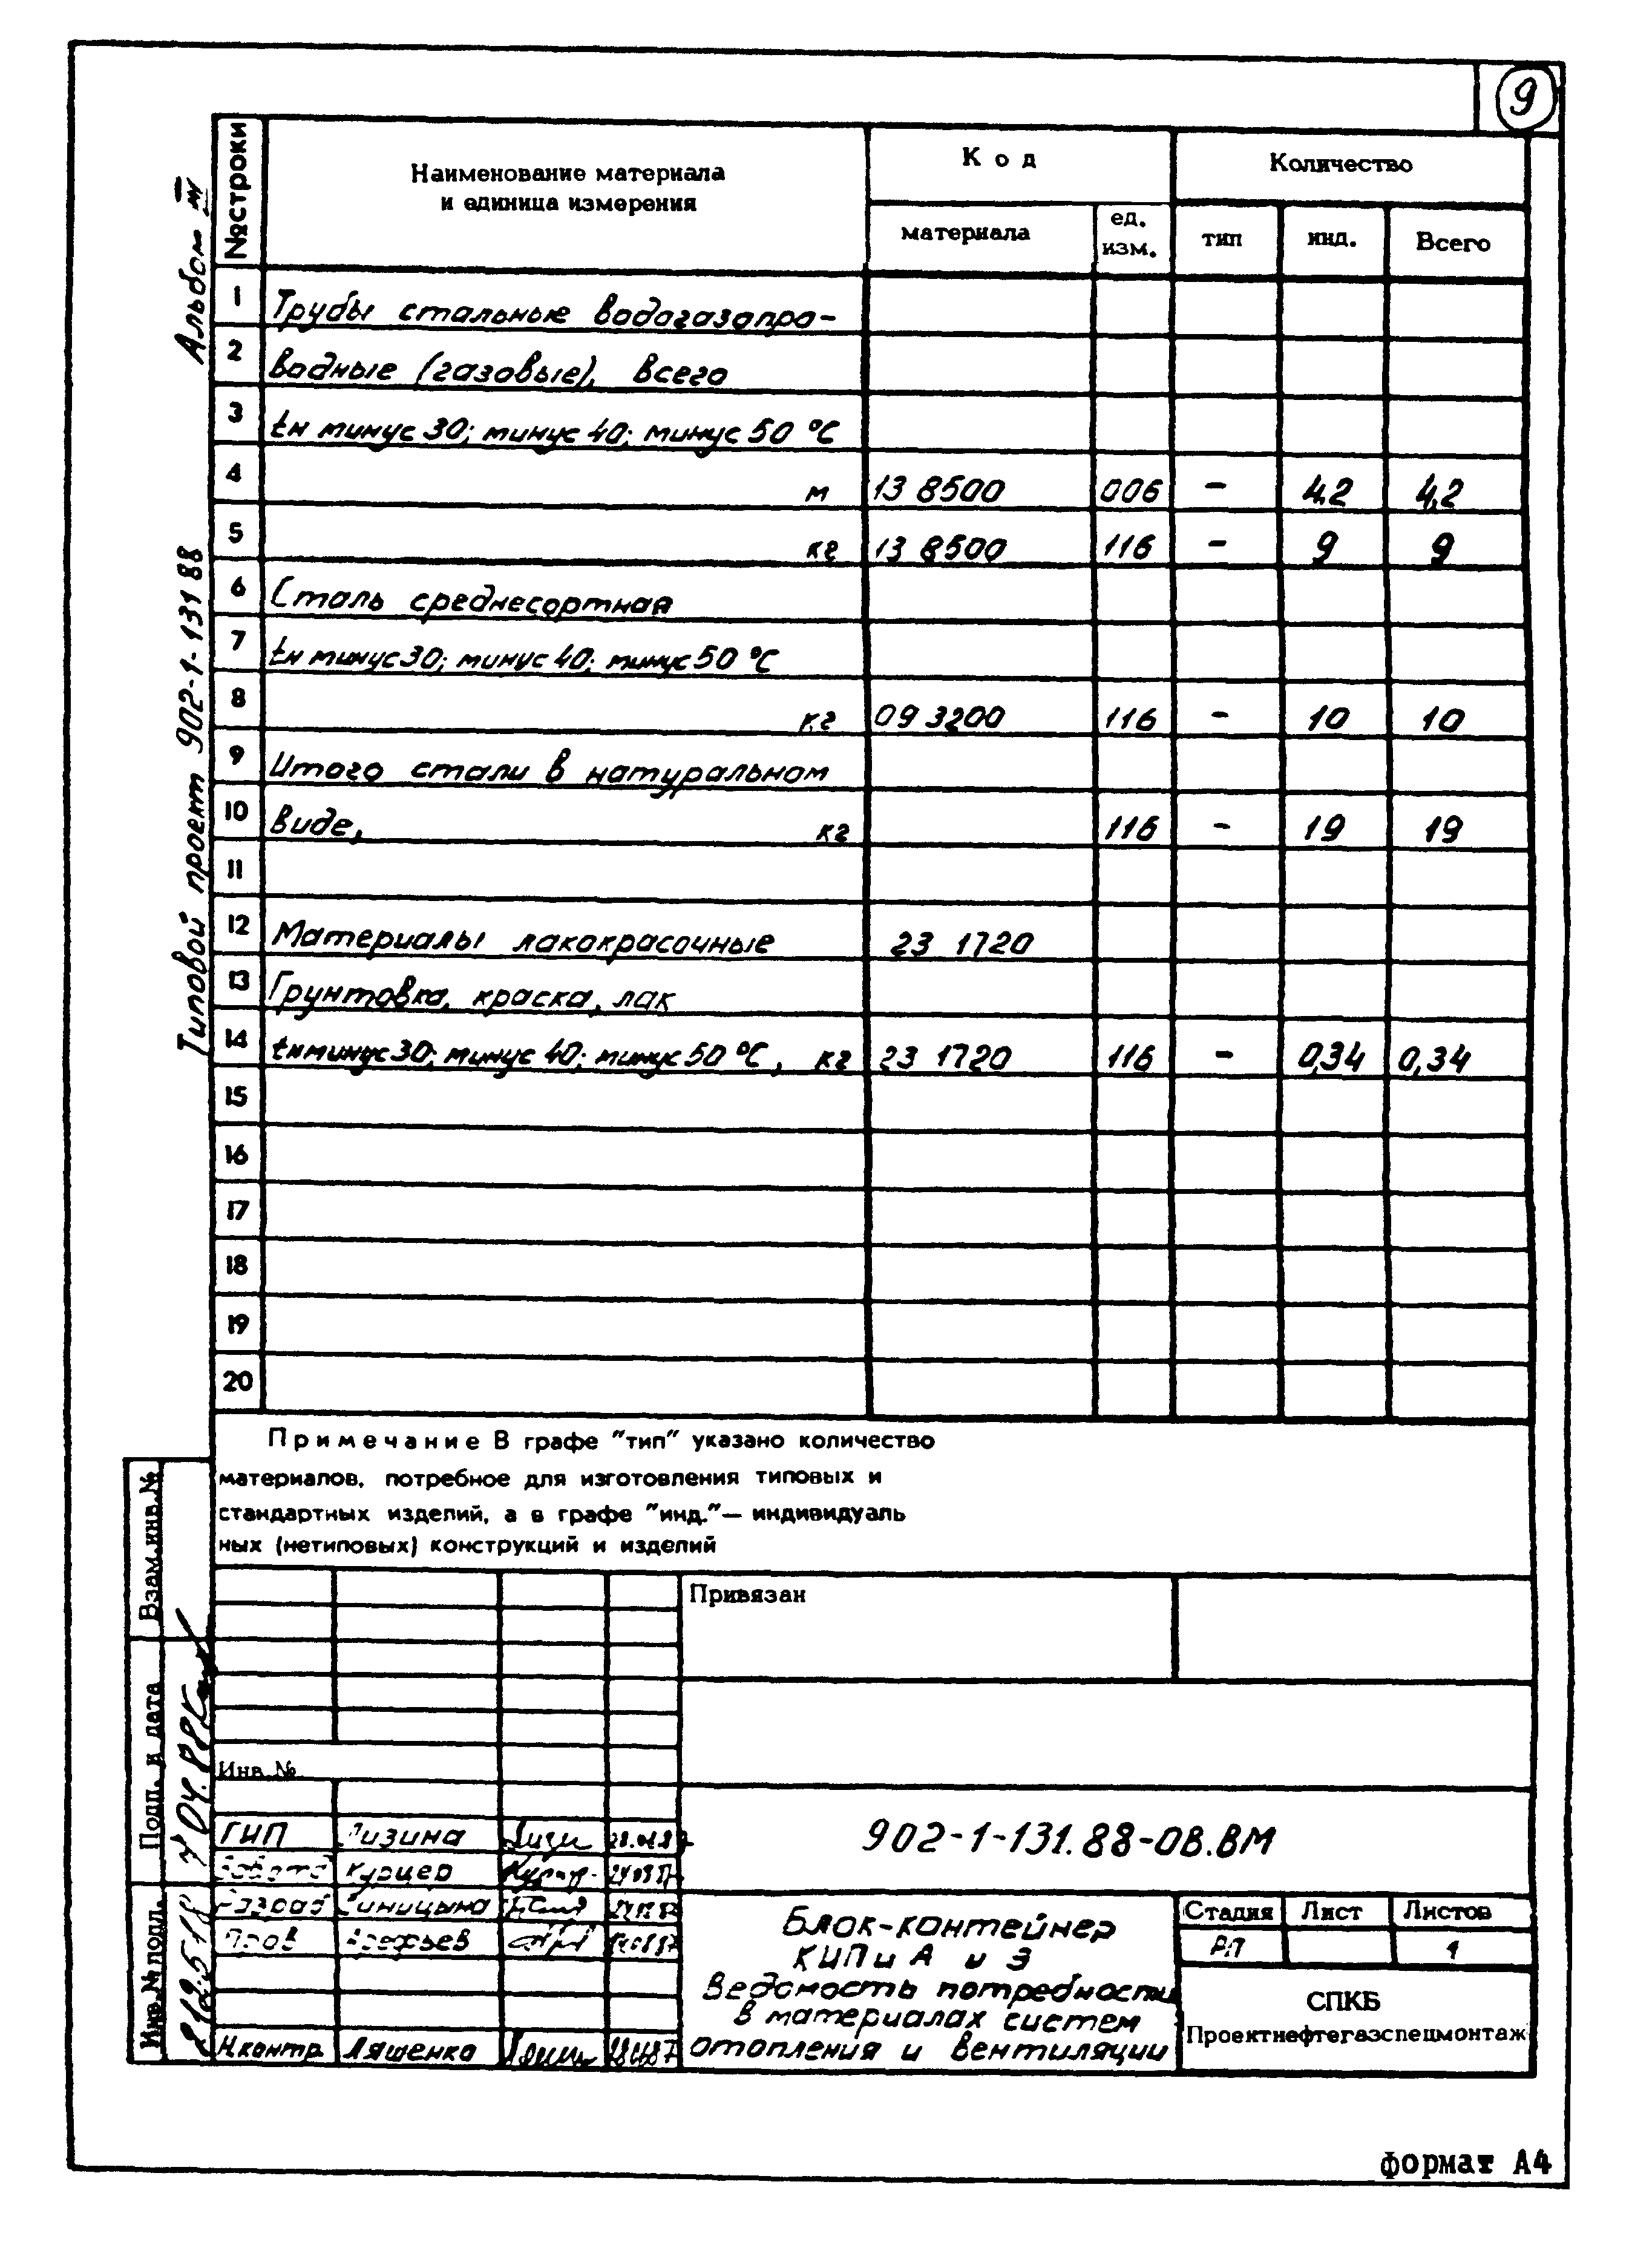 9
Альбом III
Типовой проект 902-1-131 88
№ строки
Наименование материала
и единица измерения
К о д
Количество
материала
ед.
изм.
тип
инд.
Всего
1 Трубы стальные водогазопро-
2 водные (газовые), всего
3 tн минус 30; минус 40; минус 50 °C
4 м 13 8500 006 - 4,2 4,2
5 кг 13 8500 116 - 9 9
6 Сталь среднесортная
7 tн минус 30; минус 40; минус 50 °C
8 кг 09 3200 116 - 10 10
9 Итого стали в натуральном
10 виде, кг 116 - 19 19
11
12 Материалы лакокрасочные 23 1720
13 Грунтовка, краска, лак
14 tн минус 30; минус 40; минус 50 °C, кг 23 1720 116 - 0,34 0,34
15
16
17
18
19
20
Примечание В графе "тип" указано количество
материалов, потребное для изготовления типовых и
стандартных изделий, а в графе "инд."— индивидуаль
ных (нетиповых) конструкций и изделий
Взам.инв.№
Подп. и дата
Инв.№ подл.
Привязан
Инв.№
ГИП
Курцер
Разраб Синицына
Пров
Н.контр Ляшенко
902-1-131.88-ОВ.ВМ
Блок-контейнер
КИПиА и Э
Ведомость потребности
в материалах систем
отопления и вентиляции
Стадия Лист Листов
РП 1
СПКБ
Проектнефтегазспецмонтаж
формат А4